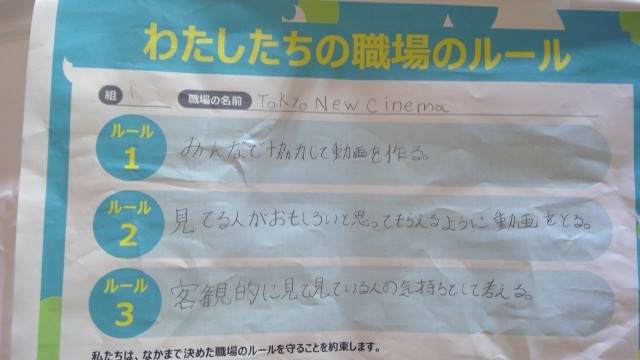 わたしたちの職場のルール
組 1 職場の名前 Tokyo New Cinema
ルール 1 みんなで協力して動画を作る。
ルール 2 見てる人がおもしろいと思ってもらえるように動画をとる。
ルール 3 客観的に見て見ている人の気持ちとして考える。
私たちは、なかまで決めた職場のルールを守ることを約束します。